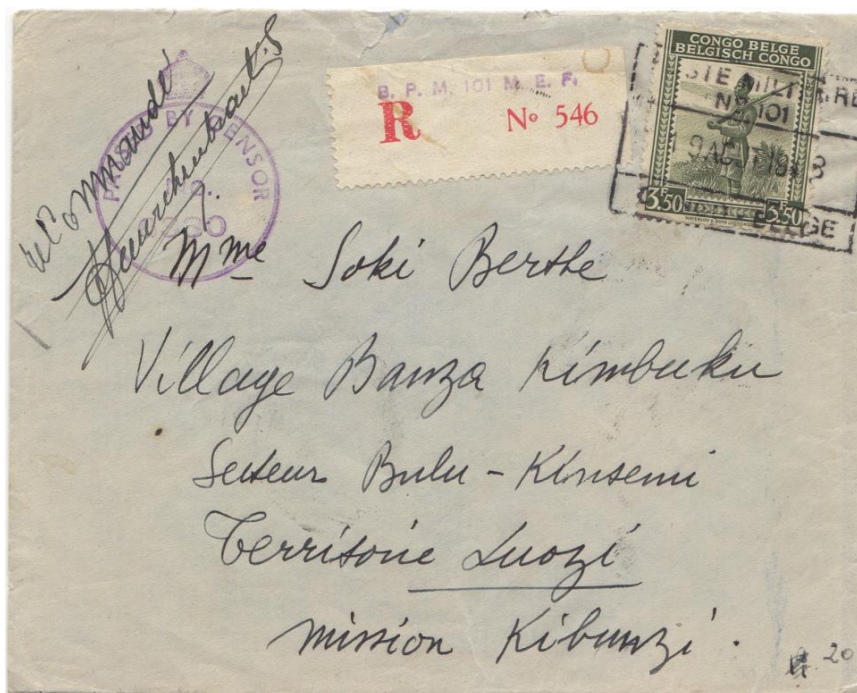 Recommandé
PASSED BY CENSOR
No.
B. P. M, 101 M. E. F.
R No 546
CONGO BELGE
BELGISCH CONGO
STE MILITAIRE
No 101
3,50 3,50
BELGE
Mme Soki Berthe
Village Banza Kimbuku
Secteur Bulu - Kinsemi
Territoire Luozi
mission Kibunzi.
20